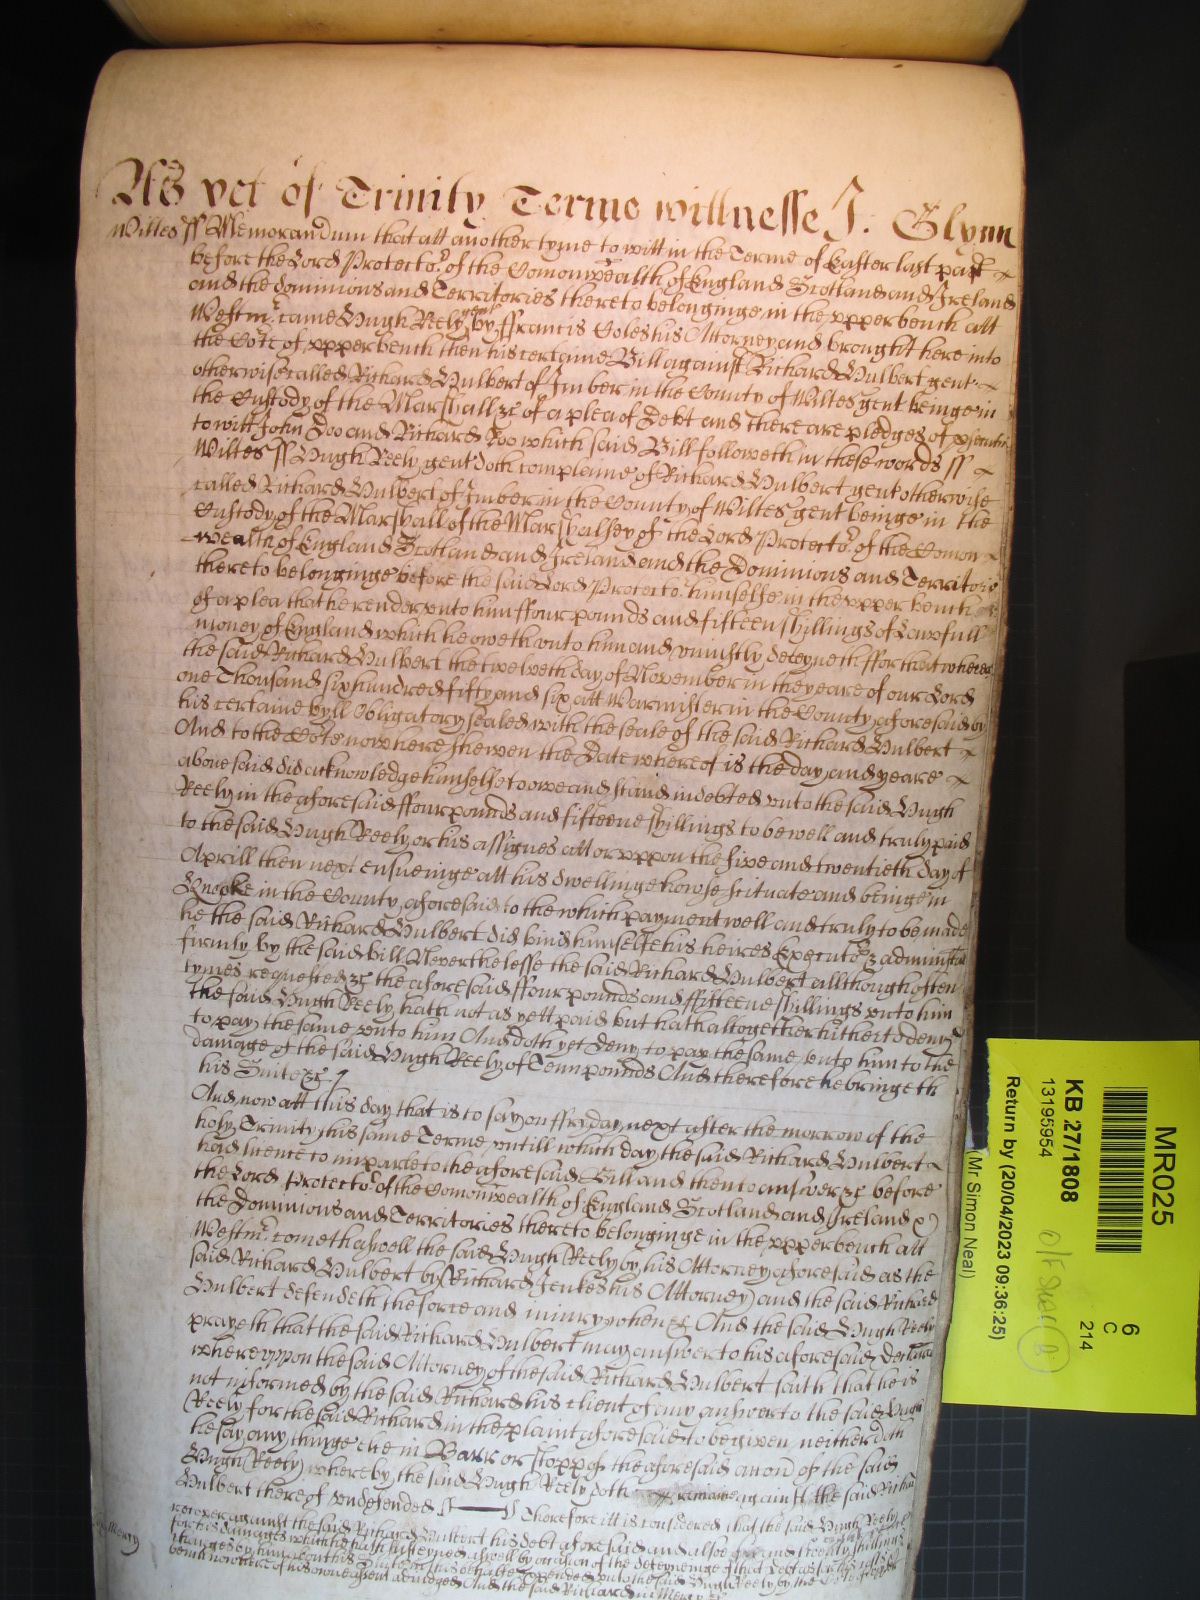 As yet of Trinity Terme wittnesse J: Glynn
Wiltes ss Memorandum that att another tyme to witt in the Terme of Easter last past
before the Lord Protecto:r of the Comonwealth of England Scotland and Ireland
and the dominions and Territories thereto belonginge in the vpper bench att
Westm:r came Hugh Reely gent by Francis Coles his Attorney and brought here into
the Co:te of vpper bench then his certaine Bill against Richard Hulbert gent
otherwise called Richard Hulbert of Imber in the County of Wiltes gent beinge in
the Custody of the Marshall &c of a plea of Debt and there are pledges of
to witt John Doo and Richard Roo which said Bill followeth in these words ss
Wiltes ss Hugh Reely gent doth complaine of Richard Hulbert gent otherwise
called Richard Hulbert of Imber in the County of Wiltes gent beinge in the
Custody of the Marshall of the Marshalsey of the Lord Protecto:r of the Comon
wealth of England Scotland and Ireland and the Dominions and Territories
thereto belonginge before the said Lord Protecto:r himselfe in the vpper bench
of a plea that he render vnto him ffour pounds and fifteen shillings of Lawfull
money of England which he oweth vnto him and vniustly deteyneth ffor that whereas
the said Richard Hulbert the twelveth day of November in the yeare of our Lord
one Thousand six hundred fifty and six att Warmister in the County aforesaid by
his certaine byll Obligatory sealed with the seale of the said Richard Hulbert
And to the Co:te now here shewen the Date whereof is the day and yeare
abovesaid did acknowledge himselfe to owe and stand indebted vnto the said Hugh
Reely in the aforesaid ffour pounds and fifteene shillings to be well and truly paid
to the said Hugh Reely or his assignes att or vppon the five and twentieth day of
Aprill then next ensueinge att his dwellinge howse scituate and beinge in
in the County aforesaid to the which payment well and truly to be made
he the said Richard Hulbert did bind himselfe his heires Executo:rs &
firmly by the said bill Neverthelesse the said Richard Hulbert allthough often
tymes requested &c the aforesaid ffour pounds and ffifteene shillings vnto him
the said Hugh Reely hath not as yett paid but hath altogether hitherto denyed
to pay the same vnto him And doth yet deny to pay the same vnto him to the
damage of the said Hugh Reely of Tenn pounds And therefore he bringeth
his Suite &c
And now att this day that is to say on ffryday next after the morrow of the
holy Trinity this same Terme vntill which day the said Richard Hulbert
had licence to imparle to the aforesaid Bill and then to answer &c before
the Lord Protecto:r of the Comonwealth of England Scotland and Ireland &
the Dominions and Territories thereto belonginge in the vpper bench att
Westm:r cometh aswell the said Hugh Reely by his Attorney aforesaid as the
said Richard Hulbert by Richard Jenkes his Attorney and the said Richard
Hulbert defendeth the force and iniury when &c And the said Hugh Reely
prayeth that the said Richard Hulbert may answer to his aforesaid
wherevppon the said Attorney of the said Richard Hulbert saith that he is
not informed by the said Richard his client of any answer to the said Hugh
Reely for the said Richard in the plaint aforesaid to be given neither doth
he say any thinge else in Barr or stopp of the aforesaid accon of the said
Hugh Reely whereby the said Hugh Reely doth remaine against the said Richard
Hulbert thereof vndefended Therefore itt is considered that the said Hugh Reely
recover against the said Richard Hulbert his debt aforesaid and alsoe
for his damages which he hath susteyned aswell by occasion of the deteyneinge of that Debt as for his
charges by him about his Suite vnto the said Hugh Reely by the
And the said Richard in Mercy &c
Mercy
MR025
6
C
214
KB 27/1808
13195954
Return by (20/04/2023 09:36:25)
(Mr Simon Neal)